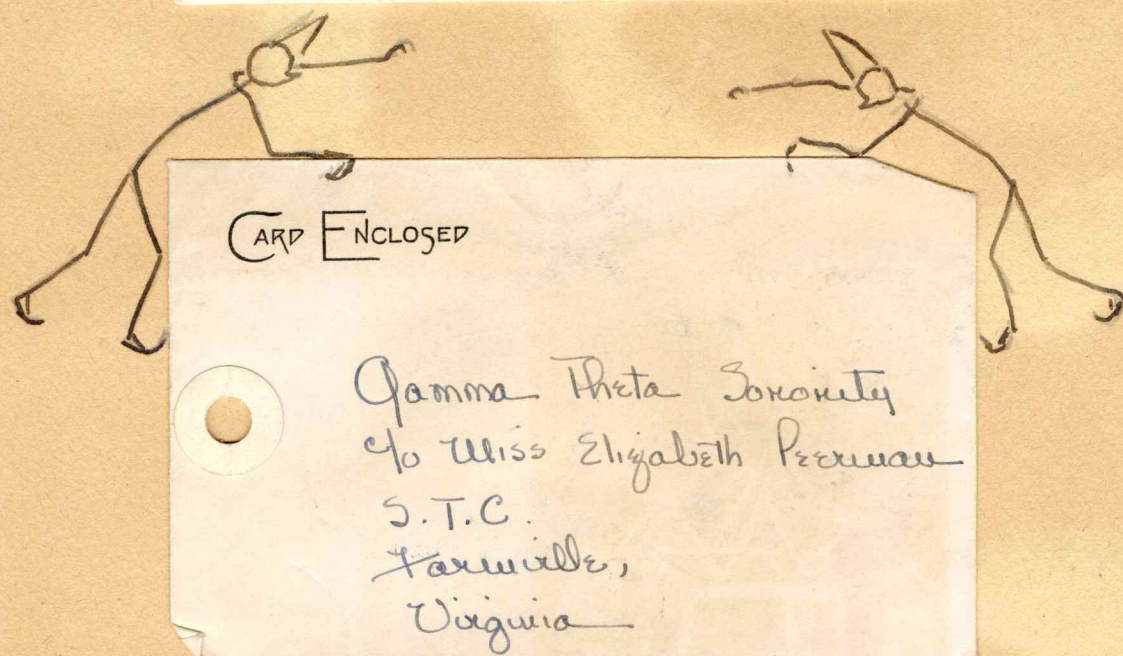 CARD ENCLOSED
Gamma Theta Sorority
c/o Miss Elizabeth Peerman
S.T.C.
Farmville,
Virginia